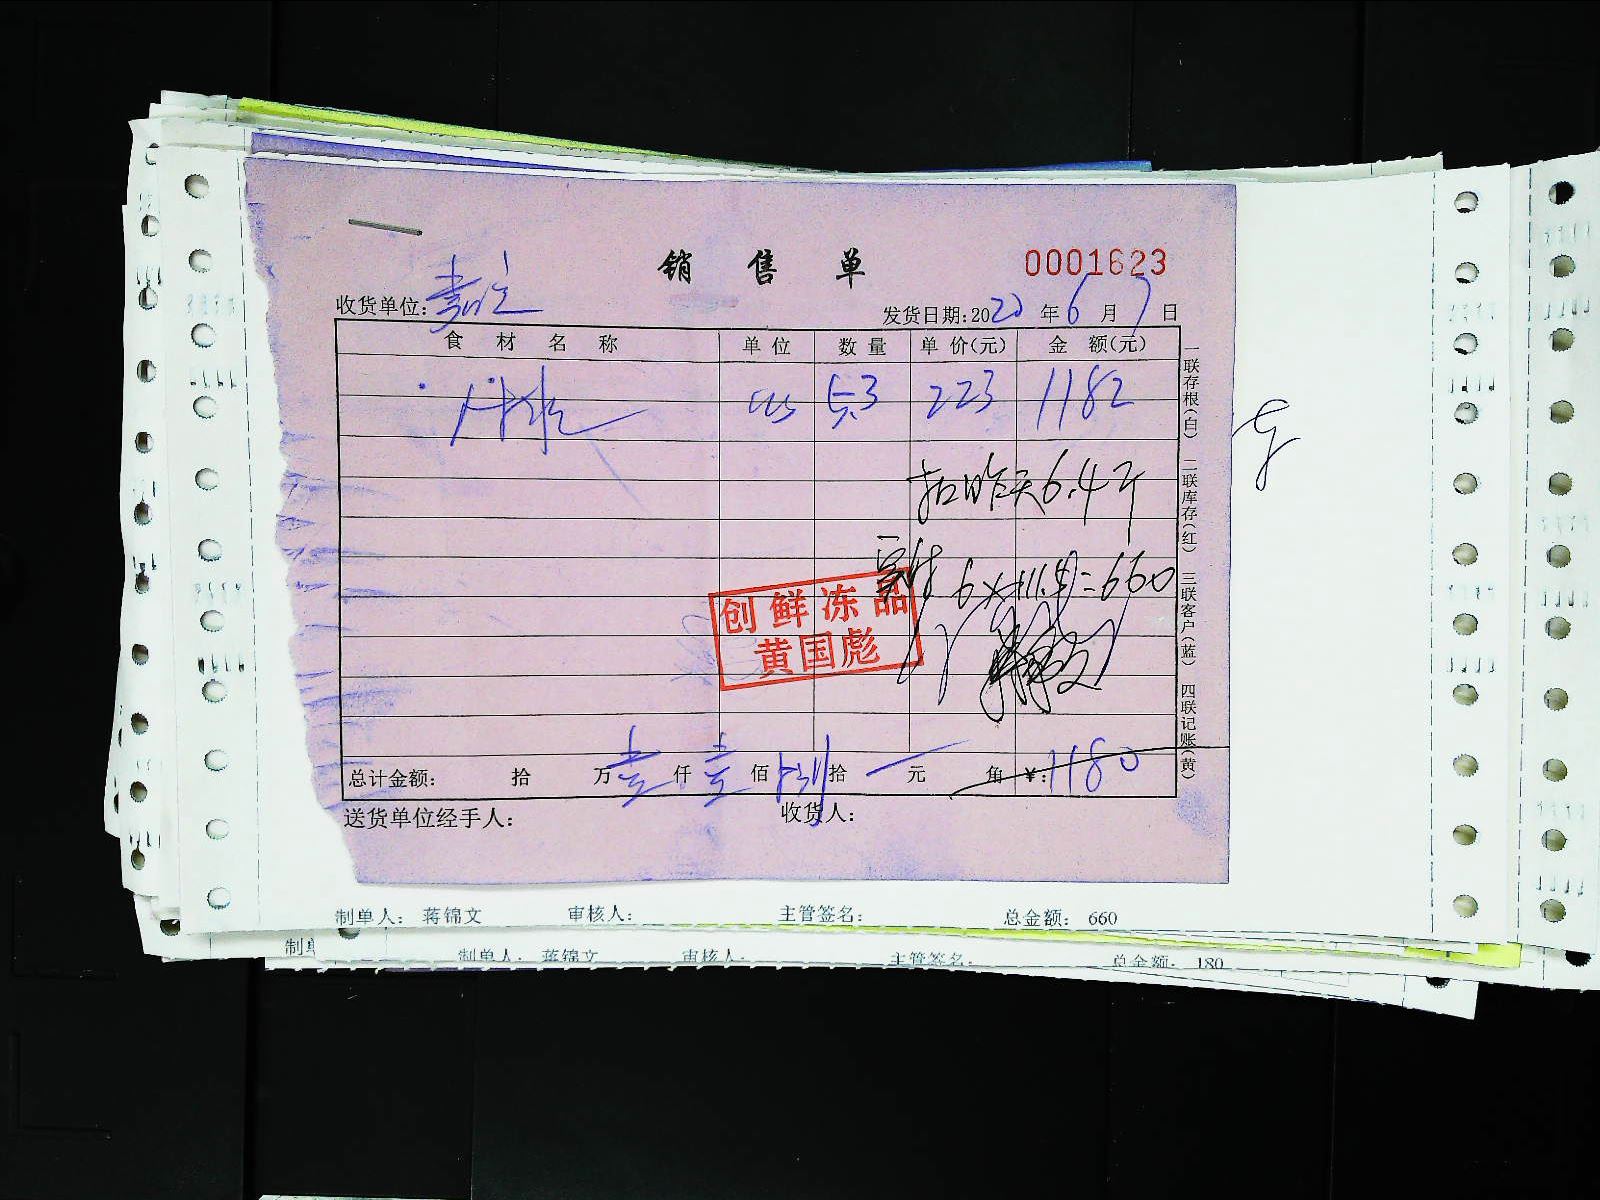 销售单
0001623
收货单位:
发货日期:2020年6月7日
食材名称 单位 数量 单价(元) 金额(元)
5.3 223 1182
扣昨天6.4斤
实结 6×111.4=660
创鲜冻品
黄国彪
总计金额: 拾 万 壹 仟 壹 佰 捌 拾 元 角 ¥:1180
送货单位经手人: 收货人:
一联存根(白) 二联库存(红) 三联客户(蓝) 四联记账(黄)
制单人: 蒋锦文 审核人: 主管签名: 总金额: 660
制单
制单人: 蒋锦文 审核人: 主管签名: 总金额: 180